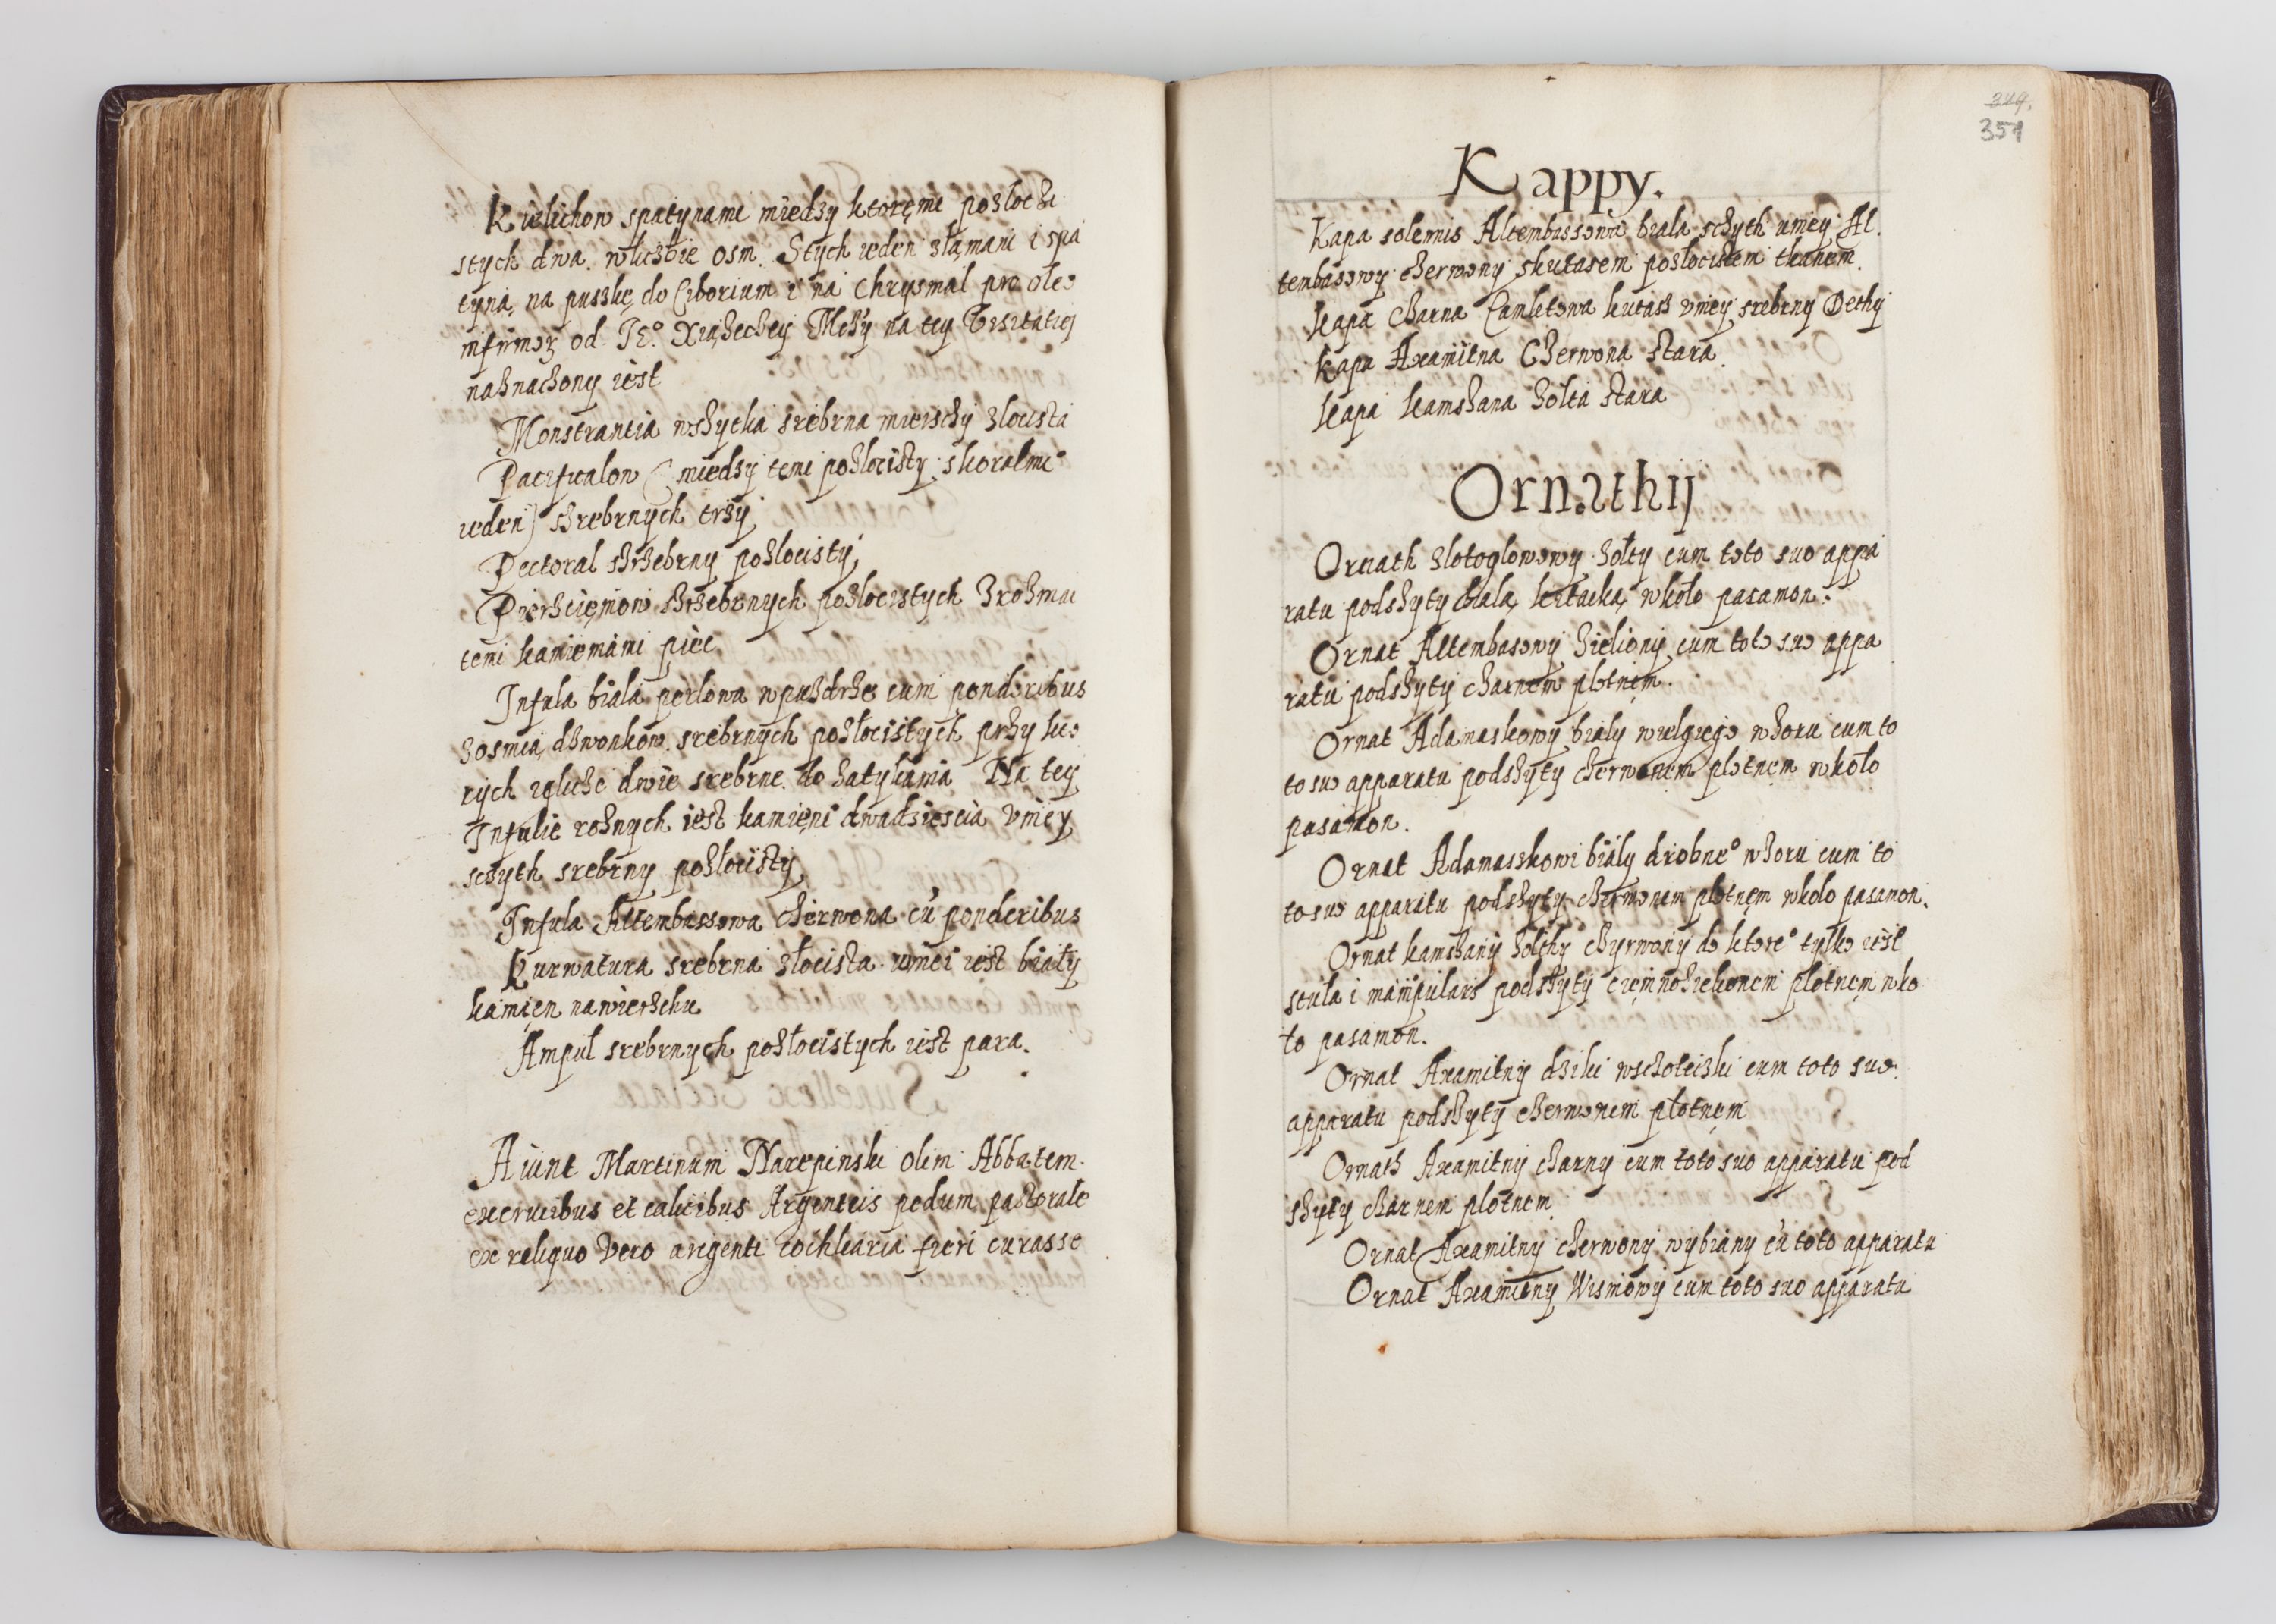 Kielichow spatynami miedzy ktoręmi pozłoci
stych dwa. wliczbie osm. Stych ieden złąmani i spa
tyną na puszkę do Ciborium i na Chrysmal pro oleo
infirmor od Je° Xiążechey Mchy na tey Visitatiej
naznachony iest
Monstrantia wszytka srebrna mieischy zlocista
Pacificalow (miedzy temi pozlocisty skoralmi
ieden) srebrnych trzy
Pectoral srzebrny pozlocisty
Pierscięniow srzebrnych pozlocistych Zrozmai
temi kamieniami pięc
Infula biala perlowa wpuzdrze cum ponderibus
zosmią dzwonkow srebrnych pozłocistych przy kto
rych igliche dwie srebrne do zatykania Na tey
Infulie roznych iest kamięni dwadziescia Vniey
schyth srebrny pozłocisty
Infula Altembassowa cherwona cũ ponderibus
Kurwatura srebrna złocista uniei iest biały
kamięn nawierschu
Ampuł srebrnych pozłocistych iest para.
Aiunt Martinum Narepinski olim Abbatem
ex crucibus et calicibus Argenteis pedum pastorale
ex reliquo Vero argenti cochlearia fieri curasse
349.
351
Kappy.
Kapa solemnis Altembassowa biala schyth uniey Al
tembasowy cherwony skutasem pozlocistem tkanem.
Kapa charna Camletowa kutasz vniey srebrny Dethy
Kapa Axamitna Cherwona stara.
Kapa kamszana zolta stara
Ornathij
Ornath zlotoglowowy zołty cum toto suo appa
ratu podszyty białą kitaiką wkoło pasamon.
Ornat Altembasowy zieliony cum toto suo appa
ratu podszyty charnem płotnęm.
Ornat Adamaskowy biały wielgiego wzoru cum to
to suo apparatu podszyty cherwonem plotnęm wkoło
pasamon.
Ornat Adamaszkowi biały drobne° wzoru cum to
to suo apparatu podszyty cherwonem płotnęm wkolo pasamon.
Ornat kamchany zolthy chyrwony do ktore° tylko iest
stula i manipularz podszyty ciemnozielionem płotnęm wko
ło pasamon.
Ornat Axamitny dziki wschoteiszki cum toto suo
apparatu podszyty cherwonem płotnęm
Ornath Axamitny charny cum toto suo apparatu pod
szyty charnem płotnem
Ornat Axamitny cherwony wybiany cũ toto apparatu
Ornat Axamitny Wismowy cum toto suo apparatu